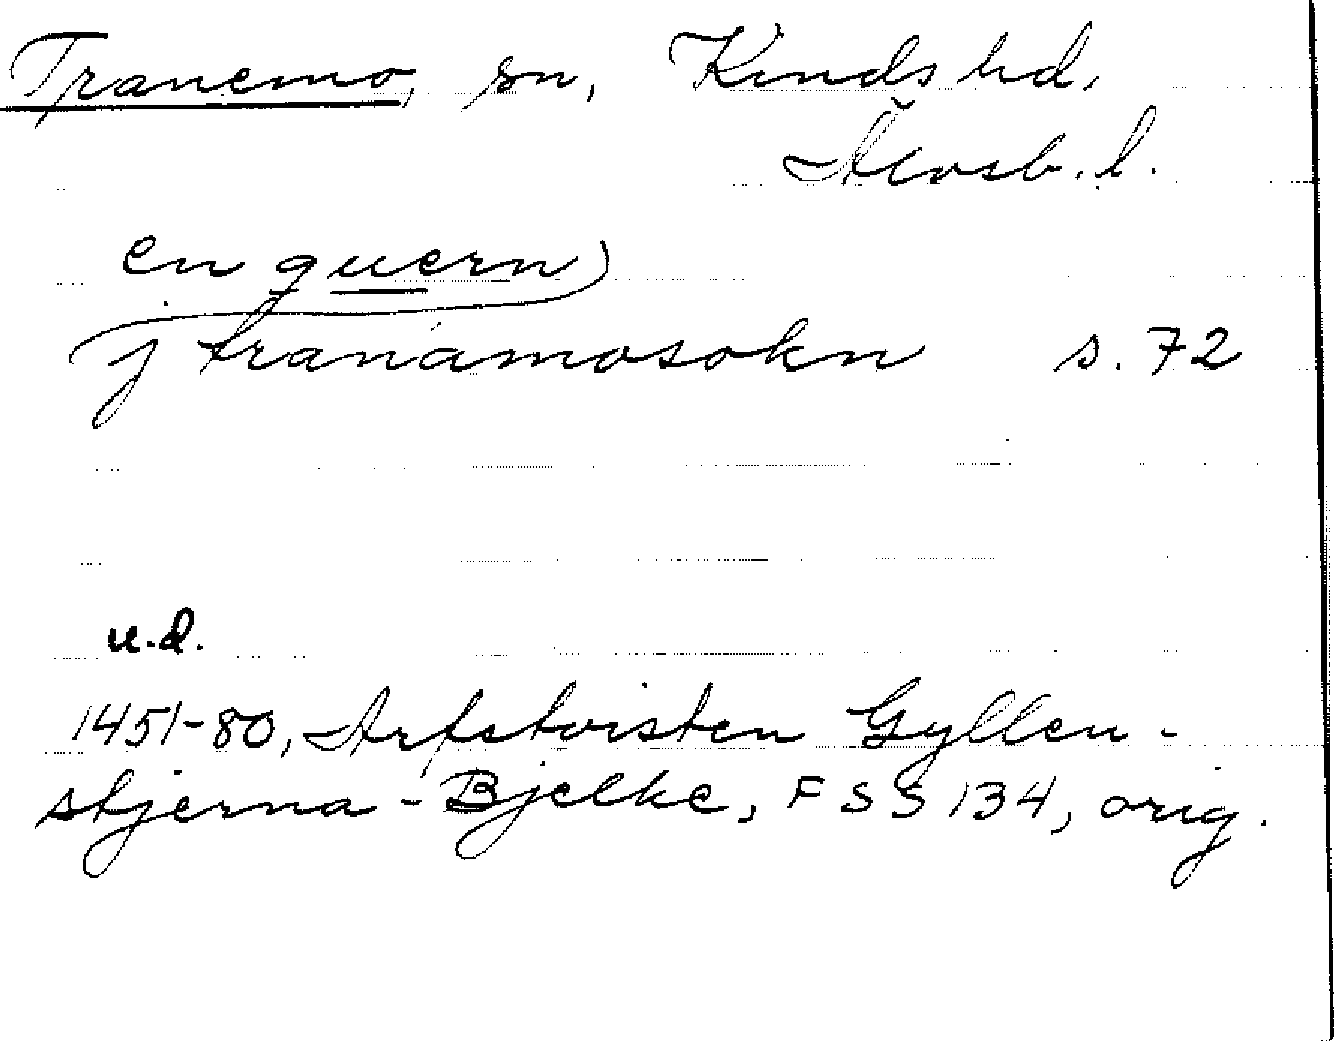 Tranemo, sn, Kinds hd,
Älvsb. l.
en quern
j tranämosokn s. 72
u.d.
1451-80, Arfstvisten Gyllen-
stjerna - Bjelke, FSS 134, orig.